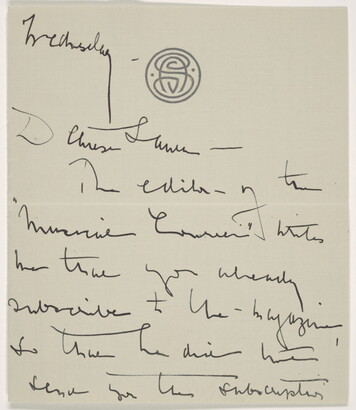 Wednesday -
Dearest Laura —
The editor of the
"Musical Courier" writes
me that you already
subscribe to the magazine
so that he did not
send you the subscription